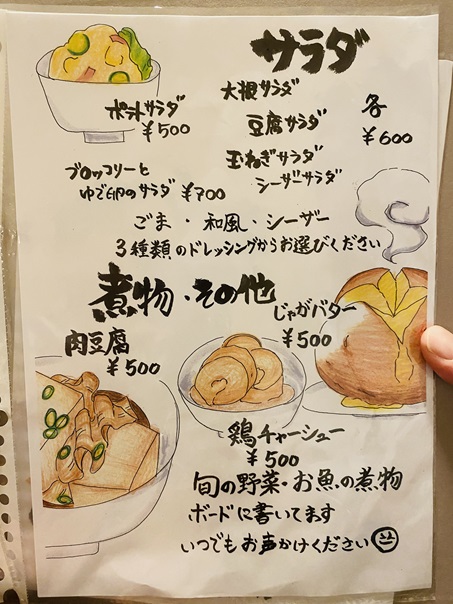 サラダ
ポテトサラダ
¥500
大根サラダ
豆腐サラダ
玉ねぎサラダ
シーザーサラダ
各
¥600
ブロッコリーと
ゆで卵のサラダ ¥700
ごま・和風・シーザー
3種類のドレッシングからお選びください
煮物・その他
肉豆腐
¥500
じゃがバター
¥500
鶏チャーシュー
¥500
旬の野菜・お魚の煮物
ボードに書いてます
いつでもお声かけください